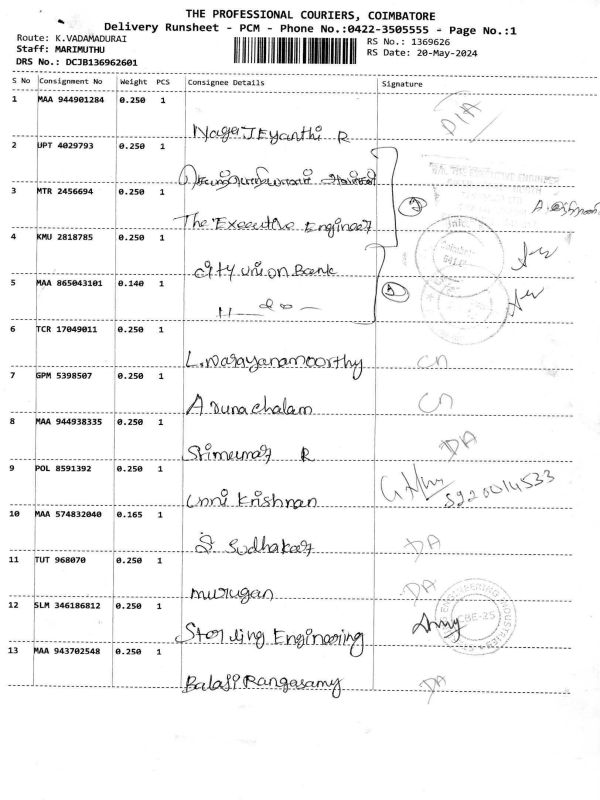 THE PROFESSIONAL COURIERS, COIMBATORE
Delivery Runsheet - PCM - Phone No.:0422-3505555 - Page No.:1
Route: K.VADAMADURAI
Staff: MARIMUTHU
DRS No.: DCJB136962601
RS No.: 1369626
RS Date: 20-May-2024
S No Consignment No Weight PCS Consignee Details Signature
1 MAA 944901284 0.250 1 Naga JEyanthi R D/A
2 UPT 4029793 0.250 1
3 MTR 2456694 0.250 1 The Executive Engineer
4 KMU 2818785 0.250 1 city union Bank
5 MAA 865043101 0.140 1
6 TCR 17049011 0.250 1 L.Narayanamoorthy
7 GPM 5398507 0.250 1 Arunachalam
8 MAA 944938335 0.250 1 R DA
9 POL 8591392 0.250 1 Unni Krishnan
10 MAA 574832040 0.165 1 S Sudhakar DA
11 TUT 968070 0.250 1 murugan DA
12 SLM 346186812 0.250 1 Sterling Engineering ENGINEERING INDUSTRIES CBE-25
13 MAA 943702548 0.250 1 Balaji Rangasamy DA